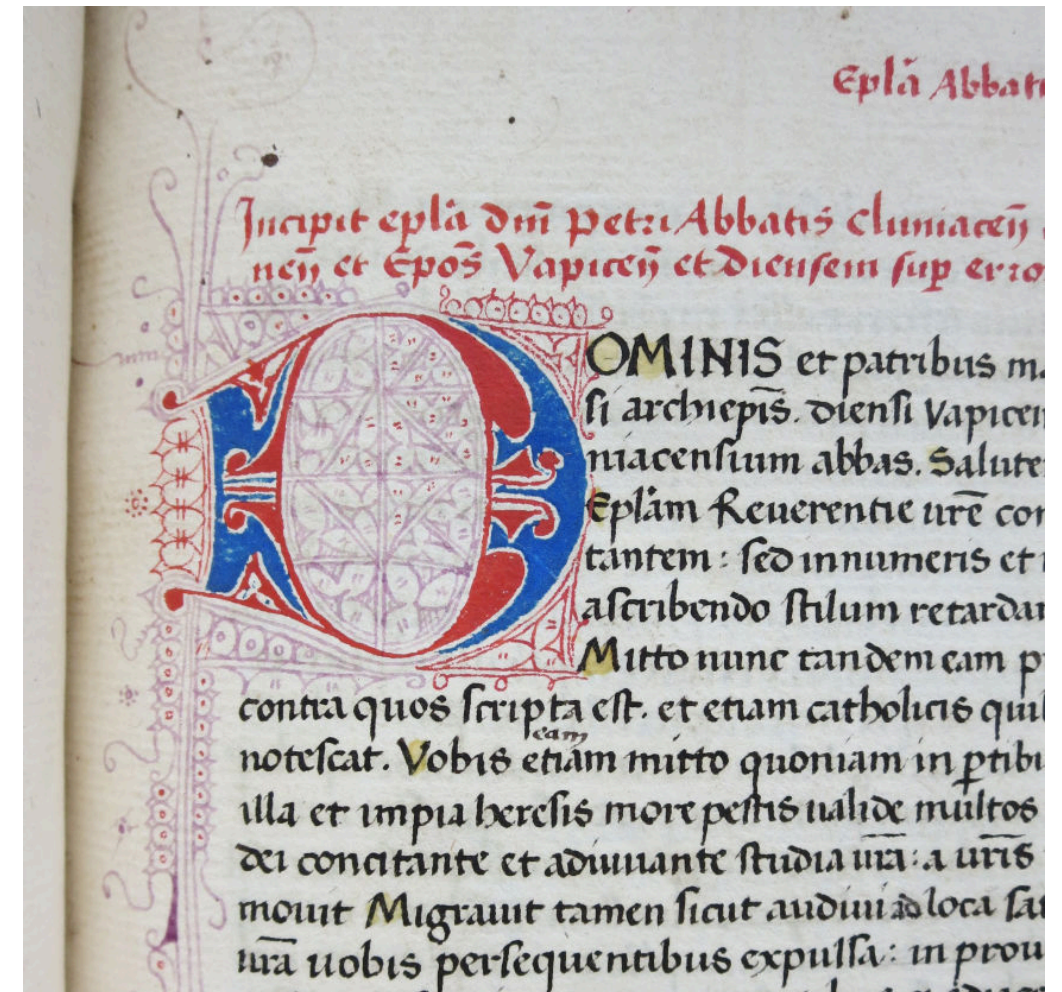 Eplā Abbat
Incipit eplā dm̄ Petri Abbatis Cluniaceñ
neñ et Epōs Vapiceñ et Diensem suꝑ erro
DOMINIS et patribus ma
si archiepīs. diensi Vapicen
niacensium abbas. Salute
Eplām Reuerentie urē con
tantem : sed innumeris et
ascribendo stilum retardar
Mitto nunc tandem eam p
contra quos scripta est. et etiam catholicis quib
eam
notescat. Vobis etiām mitto quoniam in ꝑtibu
illa et impia heresis more pestis ualide multos
dei concitante et adiuuante studia urā : a urīs
mouit Migrauit tamen sicut audiui ad loca sat
urā uobis persequentibus expulsa : in prou